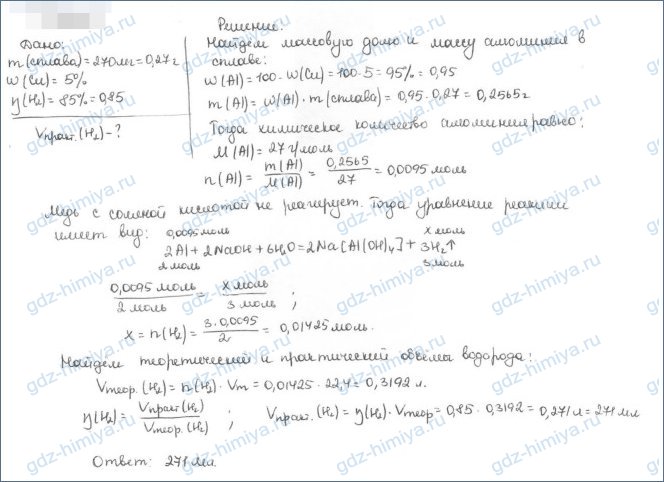 Дано:
m(сплава)=270мг=0,27г
w(Cu)=5%
η(H₂)=85%=0,85
Vпракт.(H₂)-?
Решение:
Найдем массовую долю и массу алюминия в
сплаве:
w(Al)=100-w(Cu)=100-5=95%=0,95
m(Al)=w(Al)·m(сплава)=0,95·0,27=0,2565г
Тогда химическое количество алюминия равно:
M(Al)=27г/моль
n(Al)=m(Al)/M(Al)=0,2565/27=0,0095 моль
Медь с соляной кислотой не реагирует. Тогда уравнение реакции
имеет вид:
0,0095моль x моль
2Al+2NaOH+6H₂O=2Na[Al(OH)₄]+3H₂↑
2 моль 3 моль
0,0095 моль/2 моль=x моль/3 моль;
x=n(H₂)=3·0,0095/2=0,01425моль.
Найдем теоретический и практический объемы водорода:
Vтеор.(H₂)=n(H₂)·Vm=0,01425·22,4=0,3192 л.
η(H₂)=Vпракт(H₂)/Vтеор.(H₂); Vпракт.(H₂)=η(H₂)·Vтеор=0,85·0,3192=0,271л=271мл
Ответ: 271мл.
gdz-himiya.ru